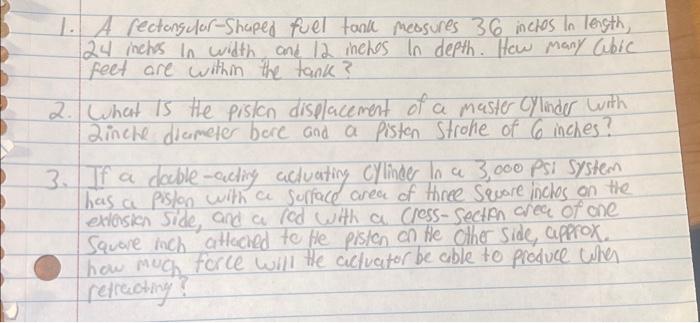 1. A rectangular-shaped fuel tank measures 36 inches In length,
24 inches In width, and 12 inches In depth. How many Cubic
feet are within the tank?
2. What Is the piston displacement of a master Cylinder with
2inche diameter bore and a Piston Stroke of 6 inches?
3. If a double-acting actuating cylinder In a 3,000 Psi System
has a piston with a surface area of three Square inches on the
extension Side, and a rod with a Cross-section area of one
Square inch attached to the piston on the other side, approx.
how much force will the actuator be able to produce when
retracting?